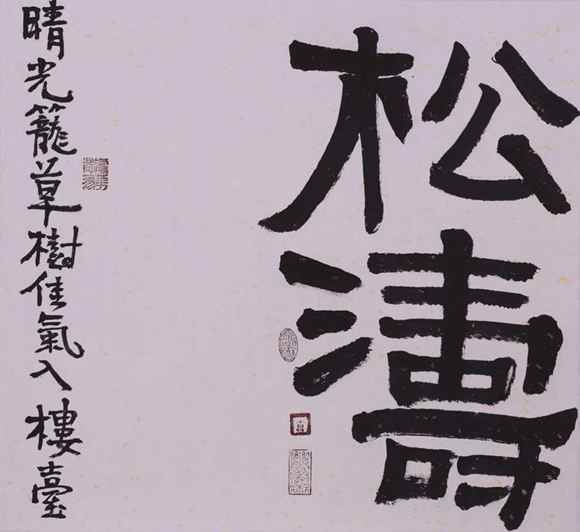 松濤
晴光籠草樹佳氣入樓臺